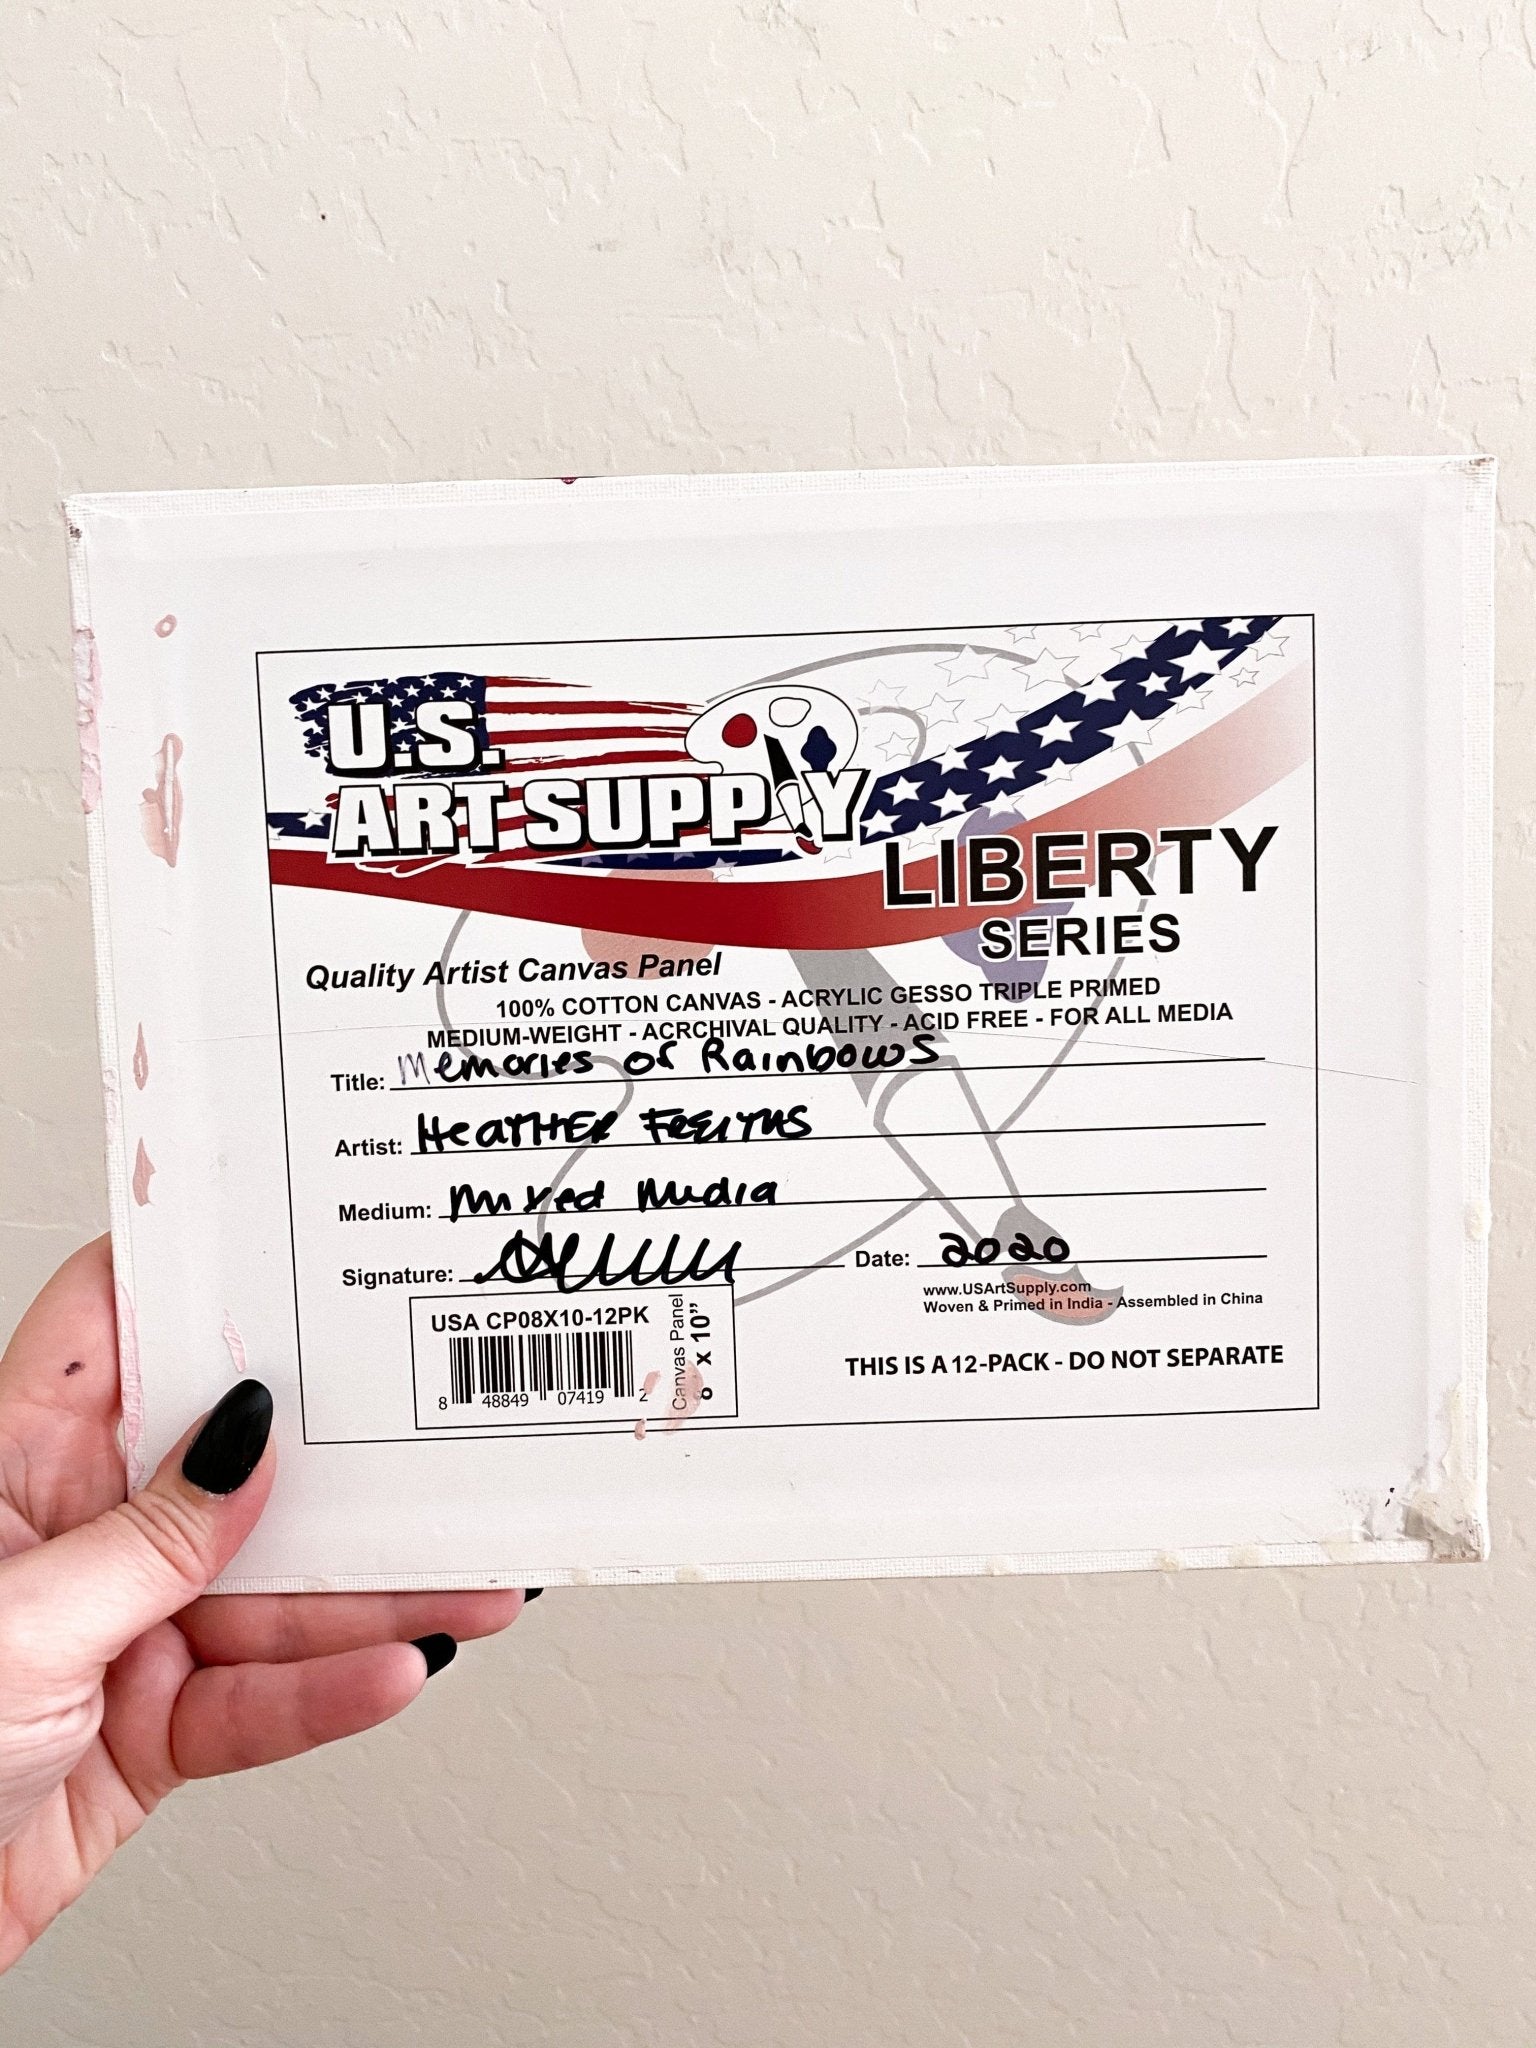 U.S.
ART SUPPLY
LIBERTY
SERIES
Quality Artist Canvas Panel
100% COTTON CANVAS - ACRYLIC GESSO TRIPLE PRIMED
MEDIUM-WEIGHT - ACRCHIVAL QUALITY - ACID FREE - FOR ALL MEDIA
Title: Memories of Rainbows
Artist: HeatHER FREITAS
Medium: Mixed Media
Signature: Date: 2020
www.USArtSupply.com
Woven & Primed in India - Assembled in China
USA CP08X10-12PK
Canvas Panel
8 x 10”
8 48849 07419 2
THIS IS A 12-PACK - DO NOT SEPARATE